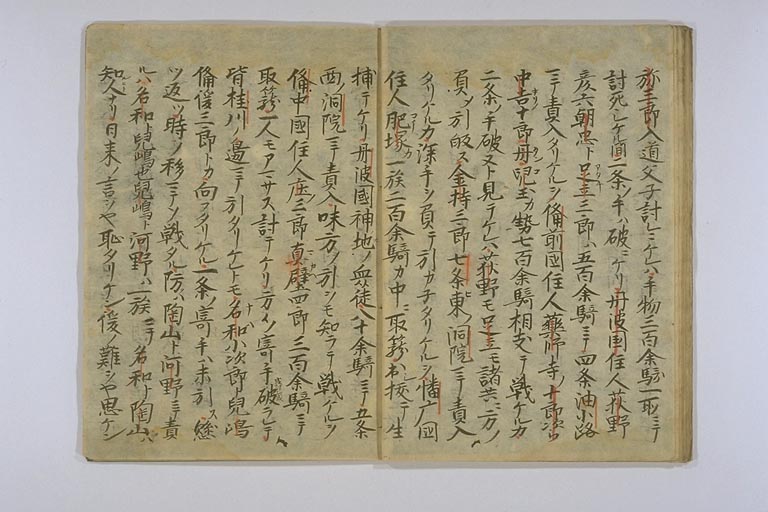 弥三郎入道父子討レニケレハ手物三百余騎一取ニテ
討死シケル間二条ノ手ハ破ニケリ丹波国住人荻野
彦六朝忠ト足立三郎ハ五百余騎ニテ四条油小路
ニテ責入タリケルヲ備前国住人薬師寺ノ十郎次郎
中吉十郎丹児玉カ勢七百余騎相支テ戦ケルカ
二条ノ手破ヌト見テケレハ荻野モ足立モ諸共ニ一方ノ
負メ引皈ス金持三郎七条東ノ洞院ニテ責入
タリケルカ深手ヲ負テ引カチタリケルヲ播广国
住人肥塚カ一族三百余騎カ中ニ取籠出抜テ生
捕テケリ丹波国神地ノ血徒八十余騎ニテ五条
西ノ洞院ニテ責入味方ノ引ヲモ知ラテ戦ケルヲ
備中國住人庄三郎真壁四郎三百余騎ニテ
取篭一人モアマサス討テケリ方々ノ寄手破ラレテ
皆桂川ノ邉ニテ引タリケレトモ名和小次郎児嶋
備後三郎トカ向フタリケル一条ノ寄手ハ未引ス懸
ツ返ツ時ノ移ニテソ戦タル防ハ陶山ト河野ニテ責
ルハ名和ト兒嶋也兒嶋ト河野ハ一族ニテ名和ト陶山ハ
知人ナリ日来ノ言ヲヤ恥タリケン後ノ難ヲヤ思ケン